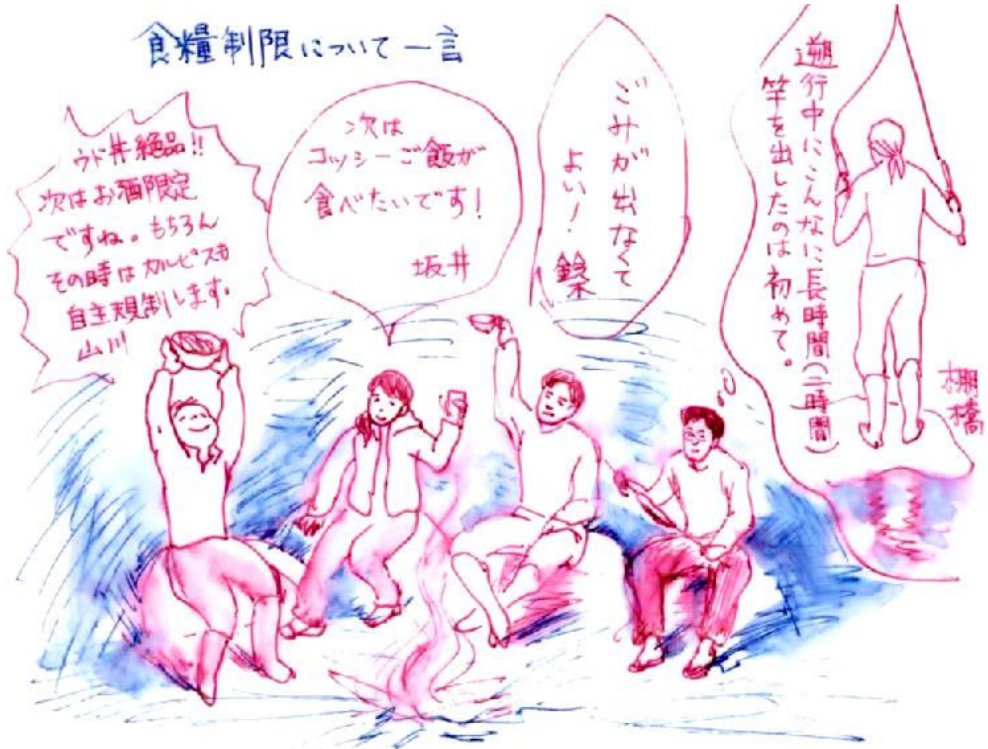 食糧制限について一言
ウド丼絶品!!
次はお酒限定
ですね。もちろん
その時はカルピスも
自主規制します。
山川
次は
コッシーご飯が
食べたいです!
坂井
ごみが出なくて
よい!
遡行中にこんなに長時間(二時間)
竿を出したのは初めて。
棚橋